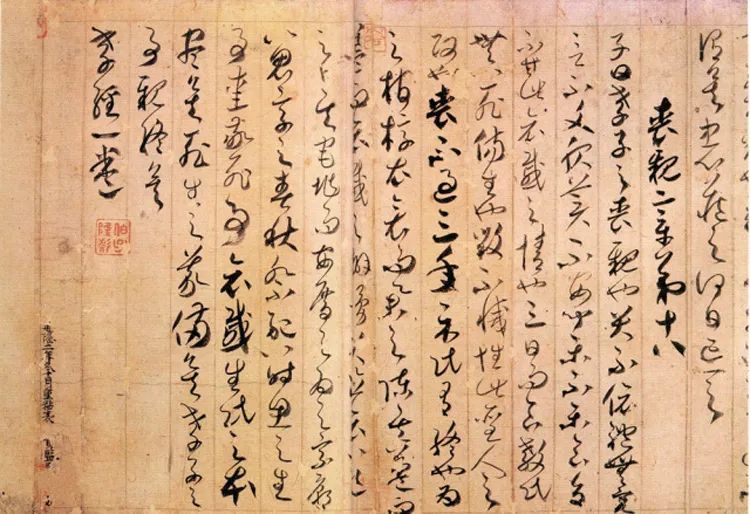 謂矣中心藏之何日忘之
喪親章第十八
子曰孝子之喪親也哭不依禮無容
言不文服美不安聞樂不樂食旨
不甘此哀慼之情也三日而食教民
無以死傷生也毀不滅性此聖人之
政也喪不過三年示民有終也為
之棺椁衣衾而舉之陳其簠
簋而哀慼之擗踊哭泣哀以送
之卜其宅兆而安厝之為之宗廟
以鬼享之春秋祭祀以時思之生
事愛敬死事哀慼生民之本
盡矣死生之義備矣孝子之
事親終矣
孝經一卷
建隆二年冬十月重粘表 賀監